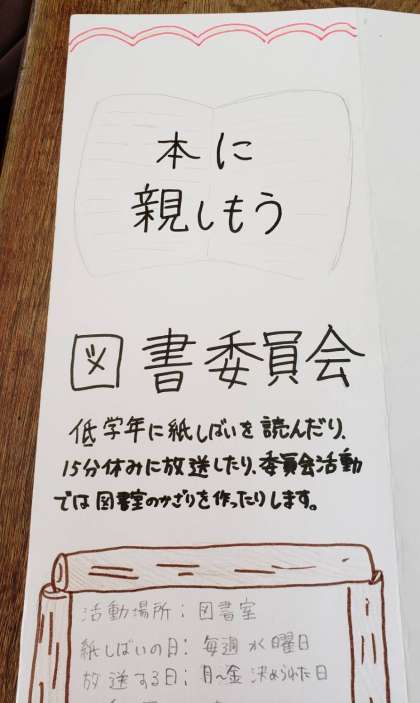 本に
親しもう
図書委員会
低学年に紙しばいを読んだり、
15分休みに放送したり、委員会活動
では図書室のかざりを作ったりします。
活動場所；図書室
紙しばいの日；毎週水曜日
放送する日；月〜金決められた日